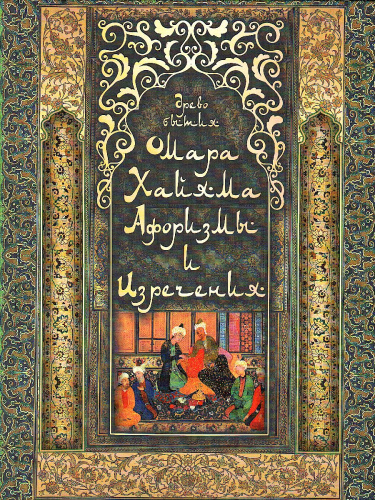 Древо
бытия
Омара
Хайяма
Афоризмы
и
Изречения